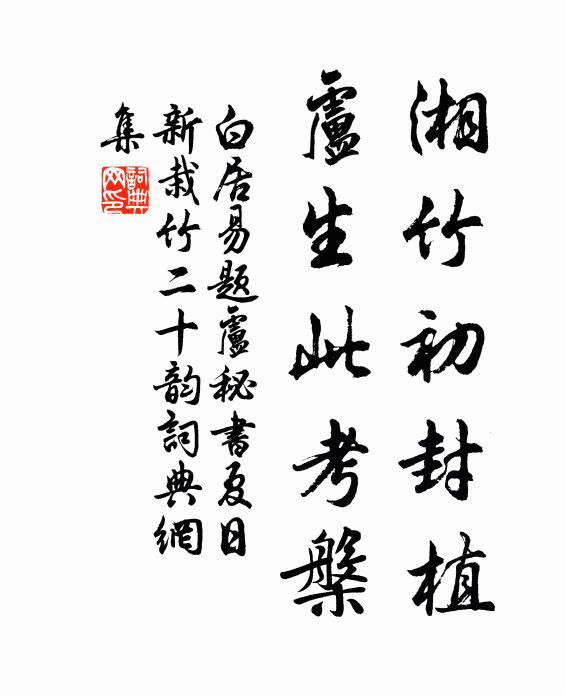 湘竹初封植
盧生此考槃
白居易題盧秘書夏日
新栽竹二十韵詞典網
集
詞典
网印